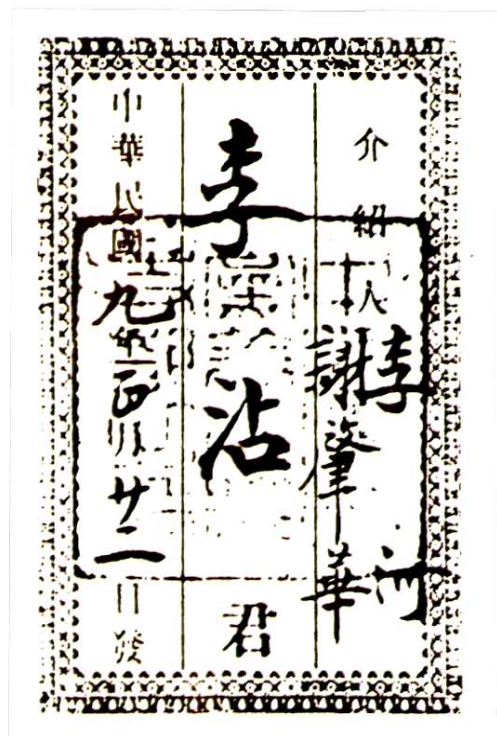 介紹人
李河
謝肇華
李沾君
中華民國九年正月廿二日發